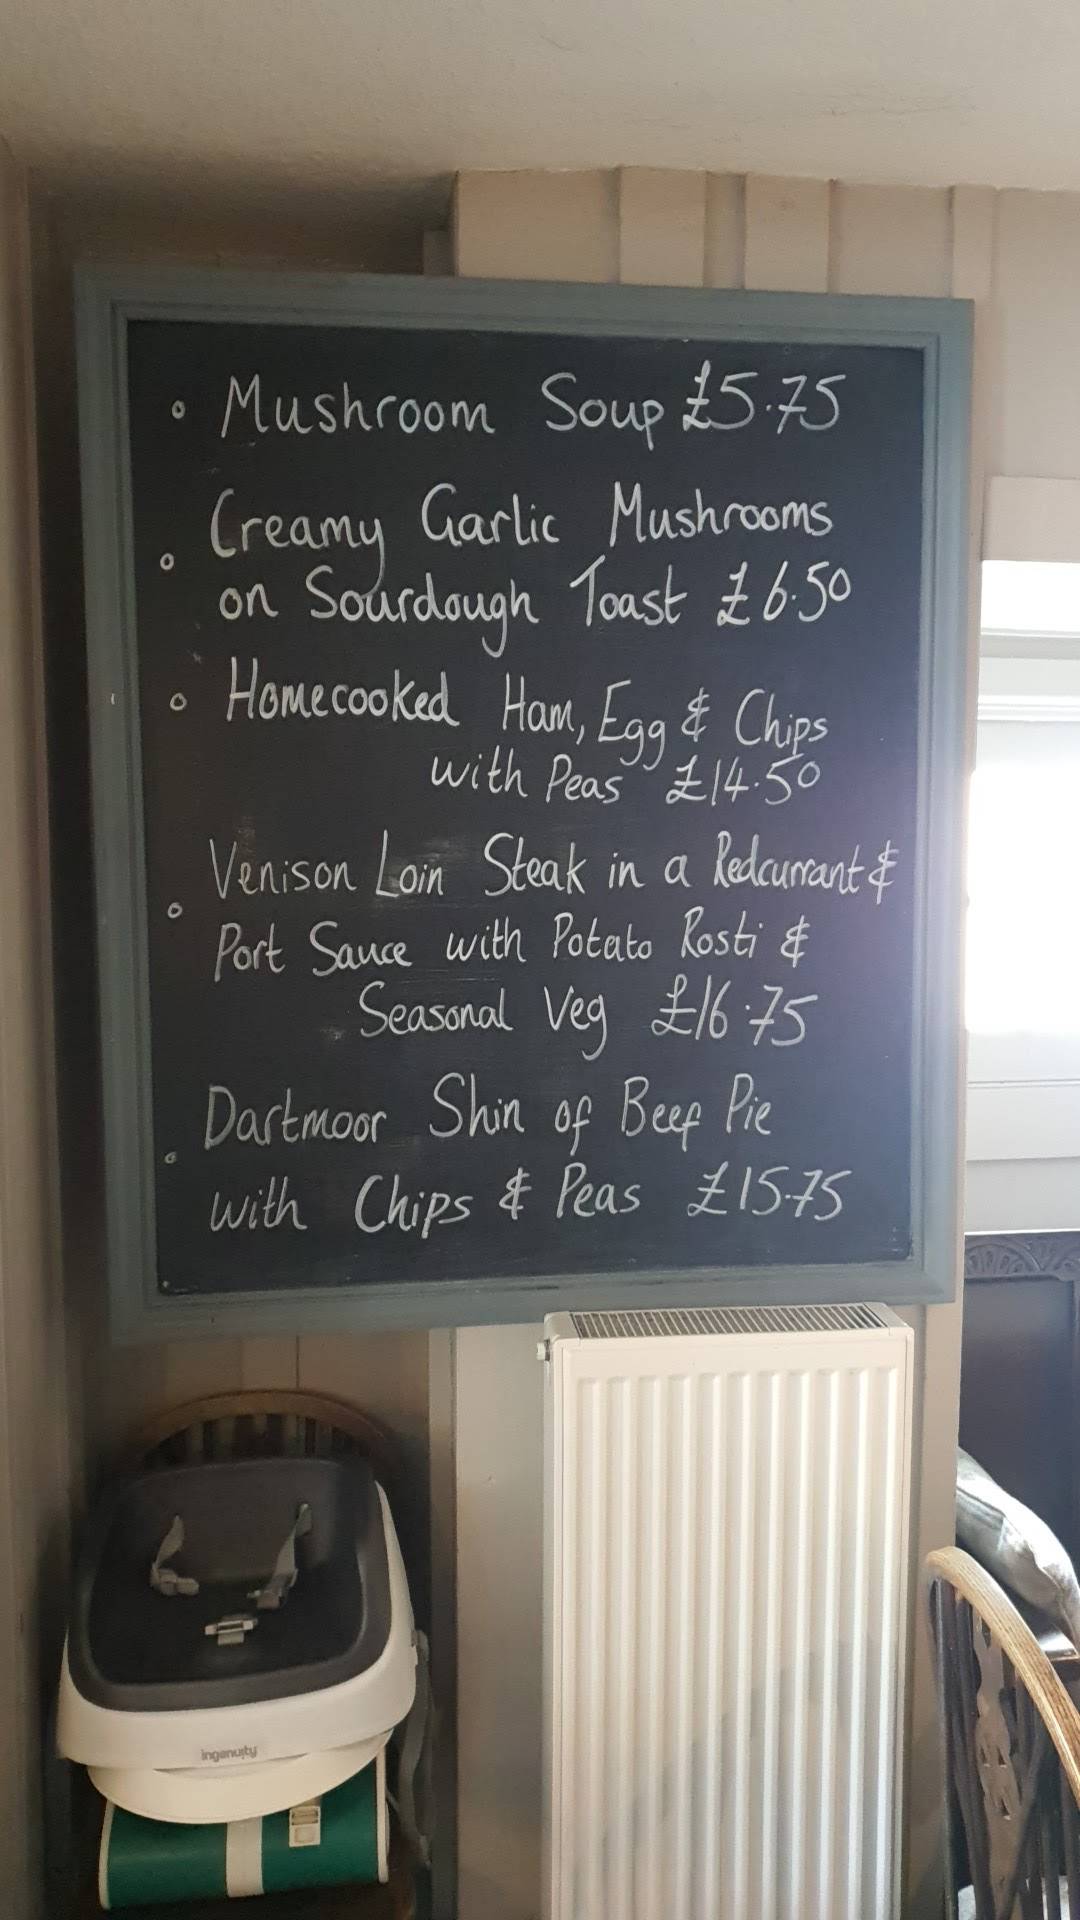 Mushroom Soup £5.75
Creamy Garlic Mushrooms
on Sourdough Toast £6.50
Homecooked Ham, Egg & Chips
with Peas £14.50
Venison Loin Steak in a Redcurrant &
Port Sauce with Potato Rosti &
Seasonal Veg £16.75
Dartmoor Shin of Beef Pie
with Chips & Peas £15.75
ingenuity